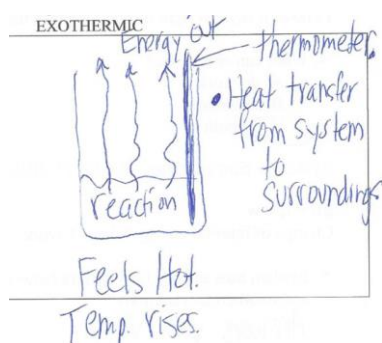 EXOTHERMIC
Energy out
thermometer.
• Heat transfer
from system
to
surroundings
reaction
Feels Hot.
Temp. rises.